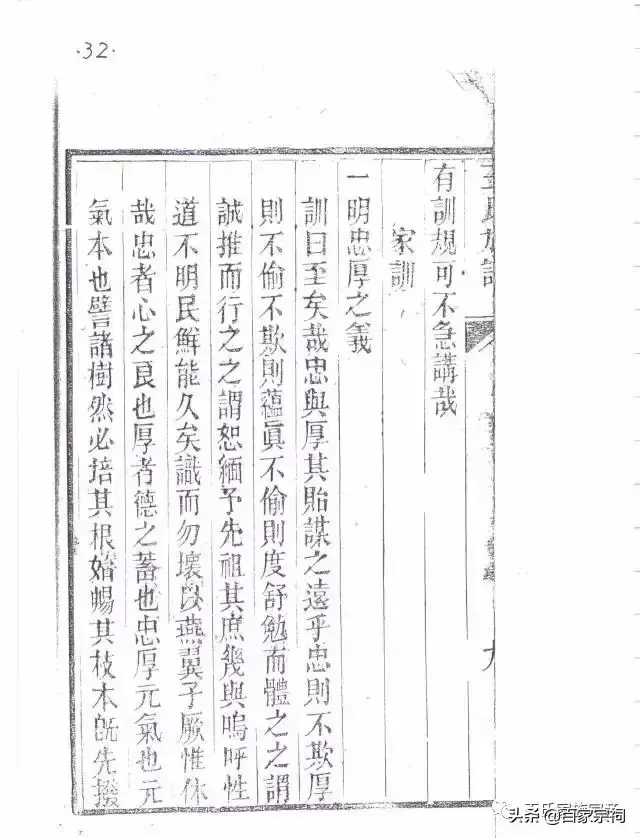 ·32·
氏族譜
九
有訓規可不急講哉
家訓
一明忠厚之義
訓曰至矣哉忠與厚其貽謀之遠乎忠則不欺厚
則不偷不欺則蘊眞不偷則度舒勉而體之之謂
誠推而行之之謂恕緬予先祖其庶幾與嗚呼性
道不明民鮮能久矣識而勿壞以燕翼子厥惟休
哉忠者心之良也厚者德之蓄也忠厚元氣也元
氣本也譬諸樹然必培其根暢其枝本旣先撥
头条 @百家宗祠